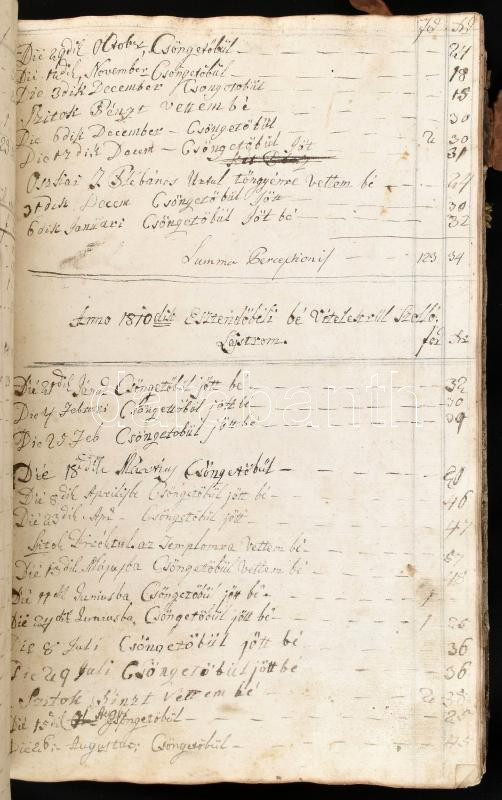 Die 29dik October, Csöngetöbül — 24
Die 12dik November Csöngetöbül — 18
Die 3dik December Csöngetöbül — 15
Szitok Pénzt vettem bé — 30
Die 6dik December — Csöngetöbül — 2 30
Die 17dik Decem — Csöngetöbül Jött — 31
Plébános Urtul töngyénre vettem bé — 24
31dik Decem Csöngetöbül Jött — 30
6dik Januari Csöngetöbül Jöt bé — 32
Summa Perceptionis — 123 34
Anno 1810dik Esztendöbéli bé Vételekrül Szolló
Lajstrom.
for xr
Die 21dik Január Csöngetöbül jött bé — 32
Die 4 Februari Csöngettöbül jött bé — 30
Die 25 Feb Csöngetöbül jött bé — 39
Die 18dik Martius Csöngetöbül — 29
Die 8dik Aprilisbe Csöngetöbül jött bé — 46
Die 23dik Apr — Csöngetöbül jött — 47
az Templomra Vettem bé — 57
Die 12dik Májusba Csöngetöbül Vettem bé
Die 11dik Juniusba Csöngetöbül jött bé — 1
Die 24dik Juniusba, Csöngetöbül jött bé — 1 26
Die 8 Juli Csöngetöbül jött bé — 36
Die 29 Juli Csöngetöbül jött bé — 36
Szitok Pénzt Vettem bé — 2 38
Die 15dik Augus Csöngetöbül — 25
Die 26 — Augustus; Csöngetöbül — 45